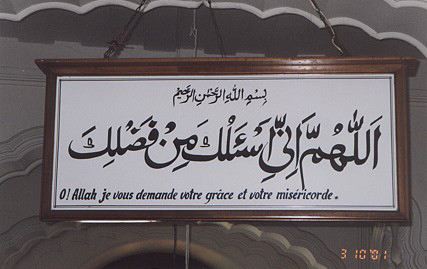 بِسْمِ اللهِ الرَّحْمٰنِ الرَّحِيْمِ
اَللّٰهُمَّ اِنِّيْ اَسْئَلُكَ مِنْ فَضْلِكَ
O! Allah je vous demande votre grâce et votre miséricorde.
3 10 '01